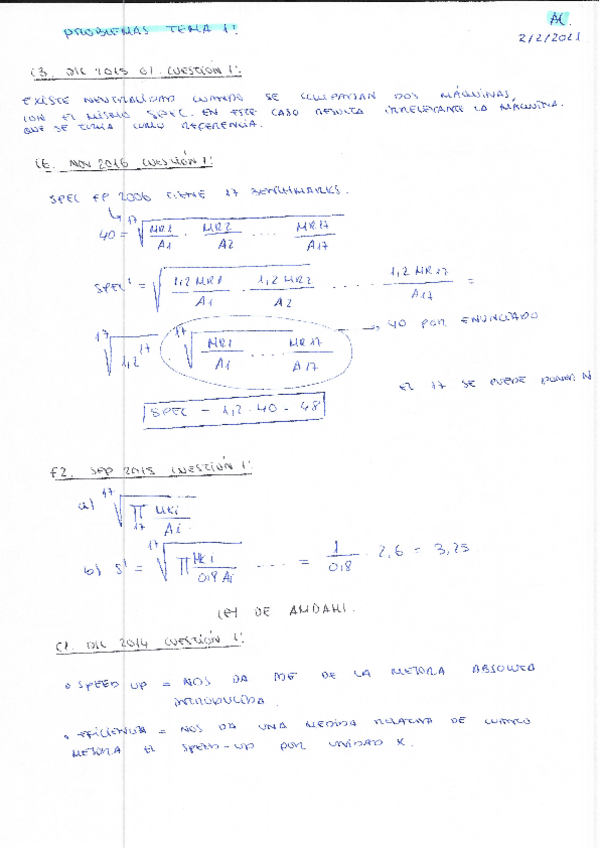 AC.
PROBLEMAS TEMA 1:
2/2/2021
C3. DIC 2015 01. CUESTIÓN 1:
EXISTE NEUTRALIDAD CUANDO SE COMPARAN DOS MÁQUINAS
CON EL MISMO SPEC. EN ESTE CASO RESULTA IRRELEVANTE LA MÁQUINA
QUE SE TOMA COMO REFERENCIA.
C6. NOV 2016 CUESTIÓN 1:
SPEC FP 2006 TIENE 17 BENCHMARKS.
40 = 17√ MR1/A1 · MR2/A2 .... MR17/A17
SPEC' = √ 1,2 MR1/A1 · 1,2 MR2/A2 ..... 1,2 MR17/A17 =
17√1,2^17 · 17√ MR1/A1 .... MR17/A17 → 40 POR ENUNCIADO
EL 17 SE PUEDE PONER N
SPEC = 1,2 · 40 = 48
F2. SEP 2015 CUESTIÓN 1:
a) 17√ Π17 MRi/Ai
b) S' = 17√ Π MRi/0,8 Ai .... = 1/0,8 · 2,6 = 3,25
LEY DE AMDAHL.
C1. DIC 2014 CUESTIÓN 1:
• SPEED UP = NOS DA DE LA MEJORA ABSOLUTA
INTRODUCIDA.
• EFICIENCIA = NOS DA UNA MEDIDA RELATIVA DE CUANTO
MEJORA EL SPEED-UP POR UNIDAD K.